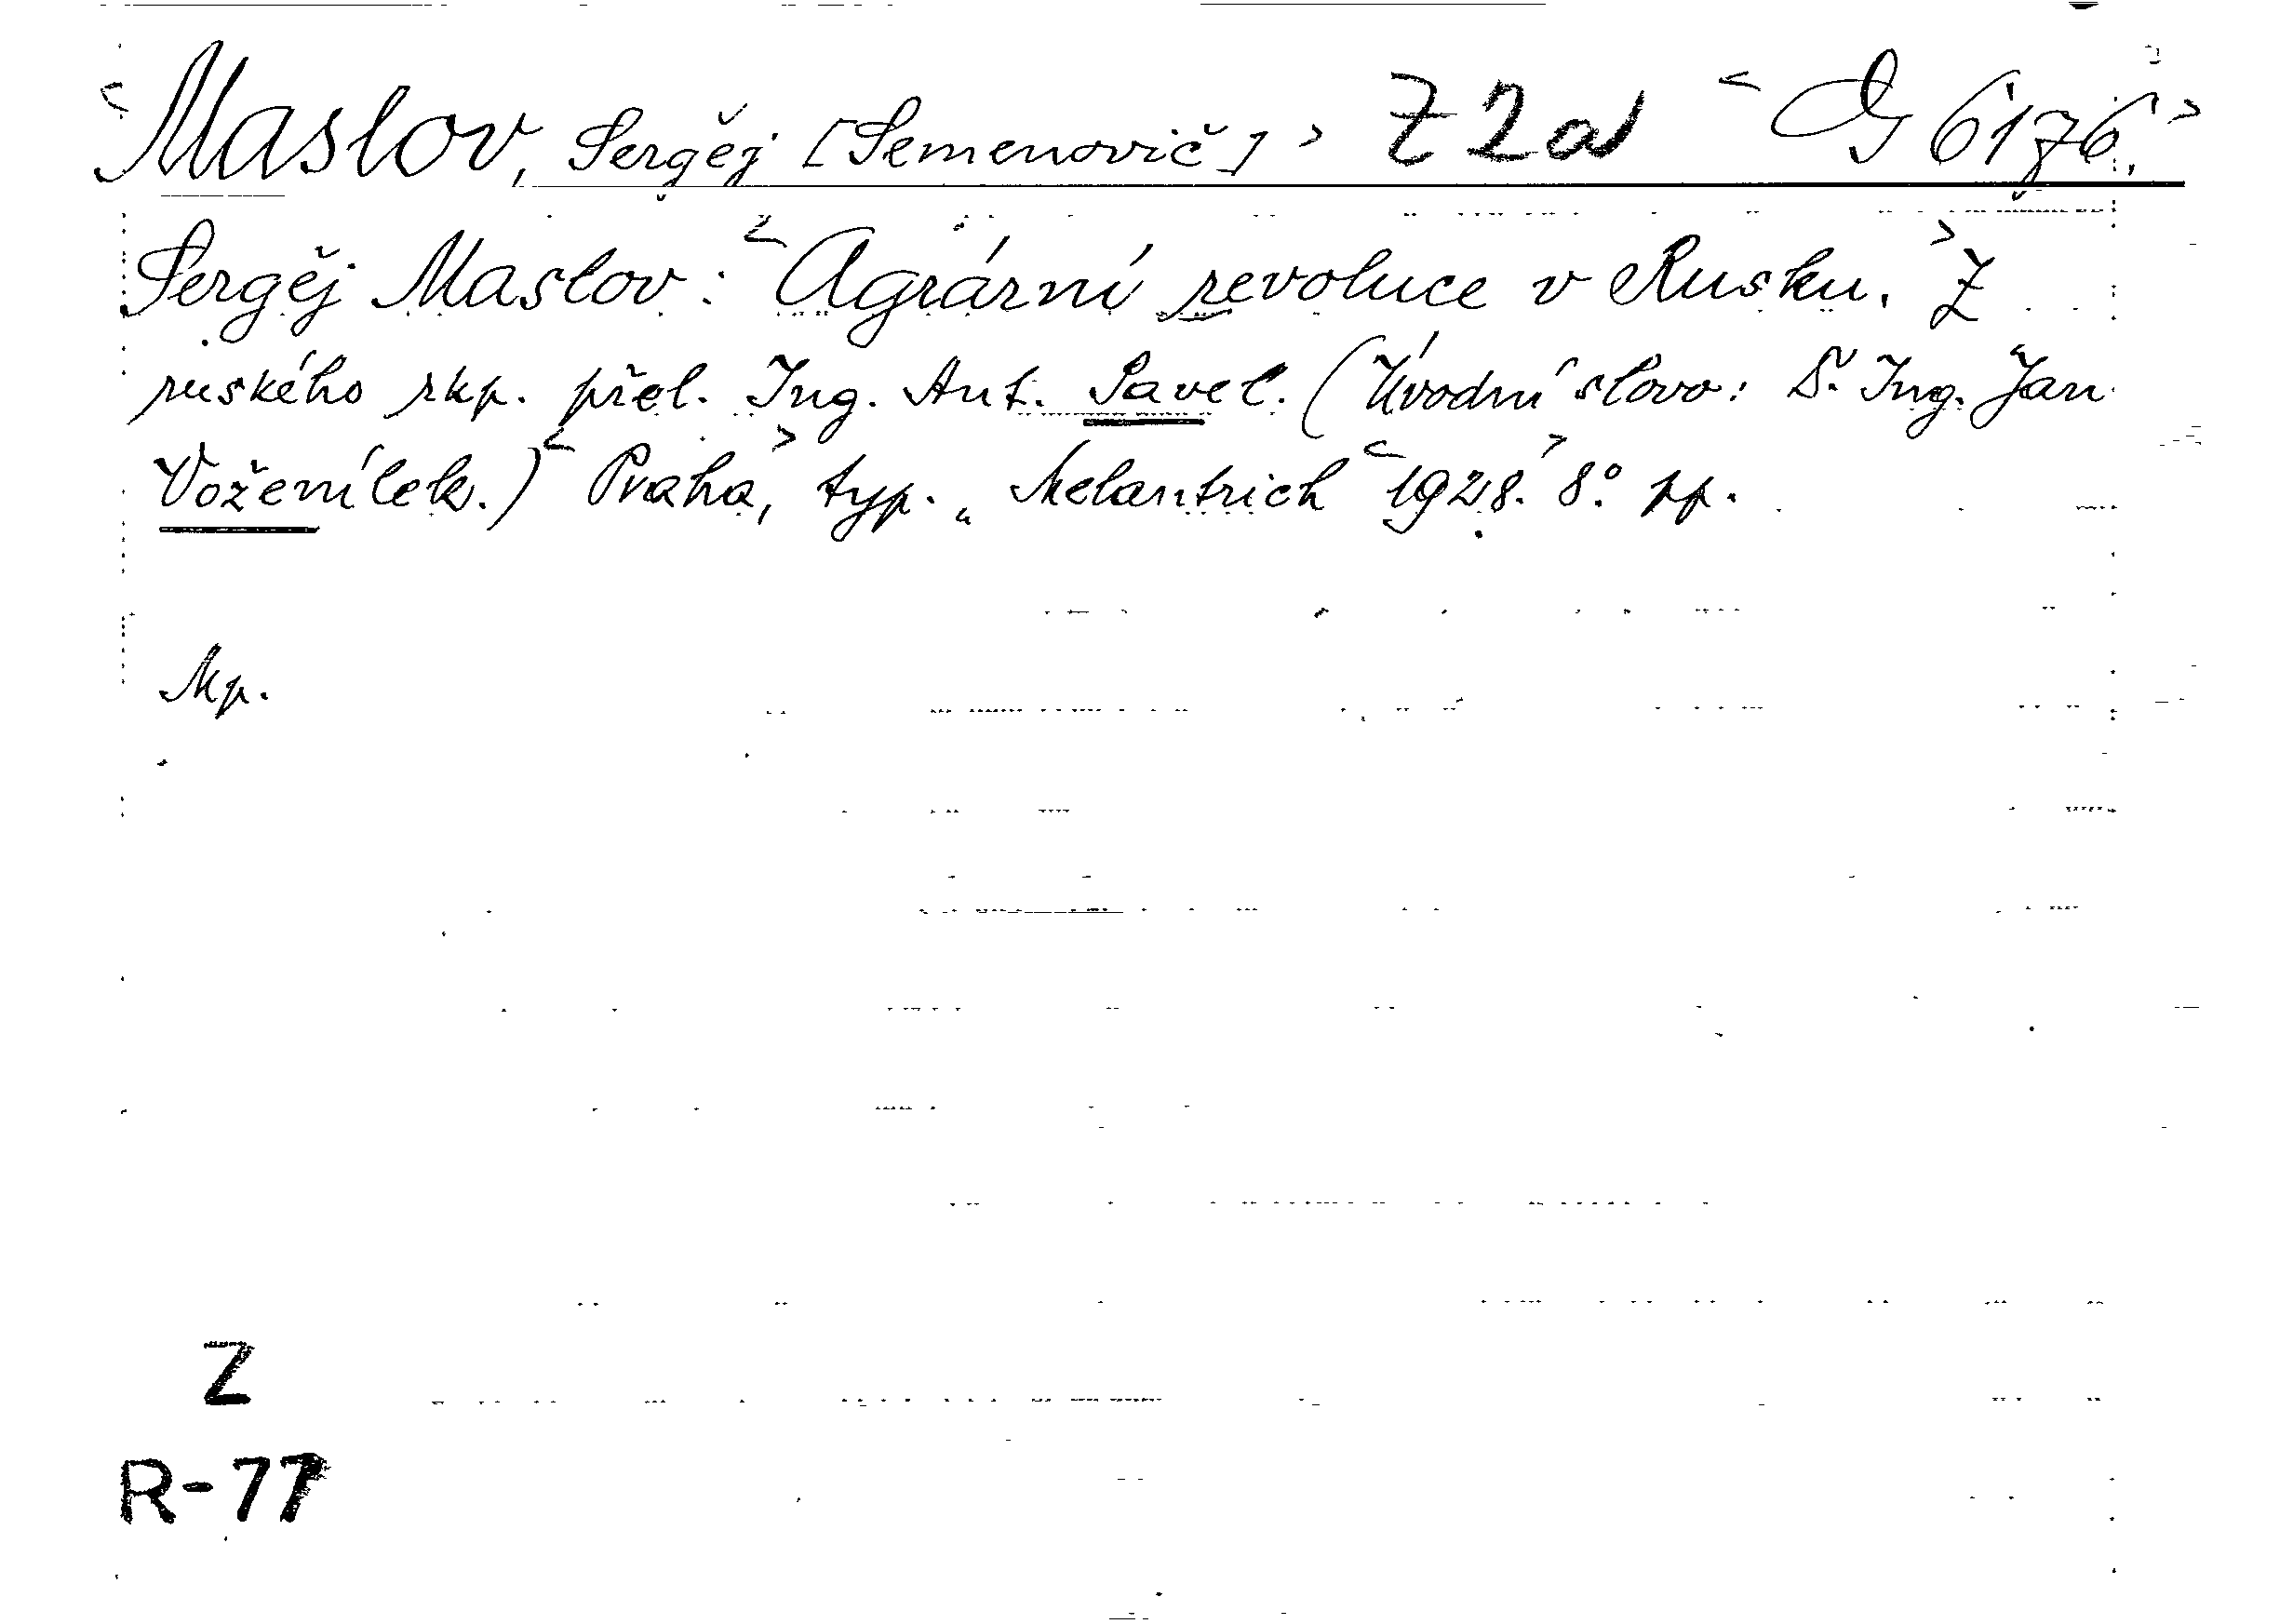 <Maslov, Sergěj [Semenovič]> Z 2a <G 6176.>
Sergěj Maslov: <Agrární revoluce v Rusku.> Z
ruského rkp. přel. Ing. Ant. Pavel. (Úvodní slovo: Dr. Ing. Jan
Voženílek.) <Praha,> typ. „Melantrich <1928.> 8° pp.
Mp.
Z
R-77